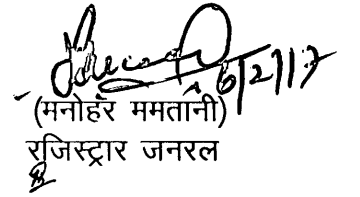 6/2/17
(मनोहर ममतानी)
रजिस्ट्रार जनरल